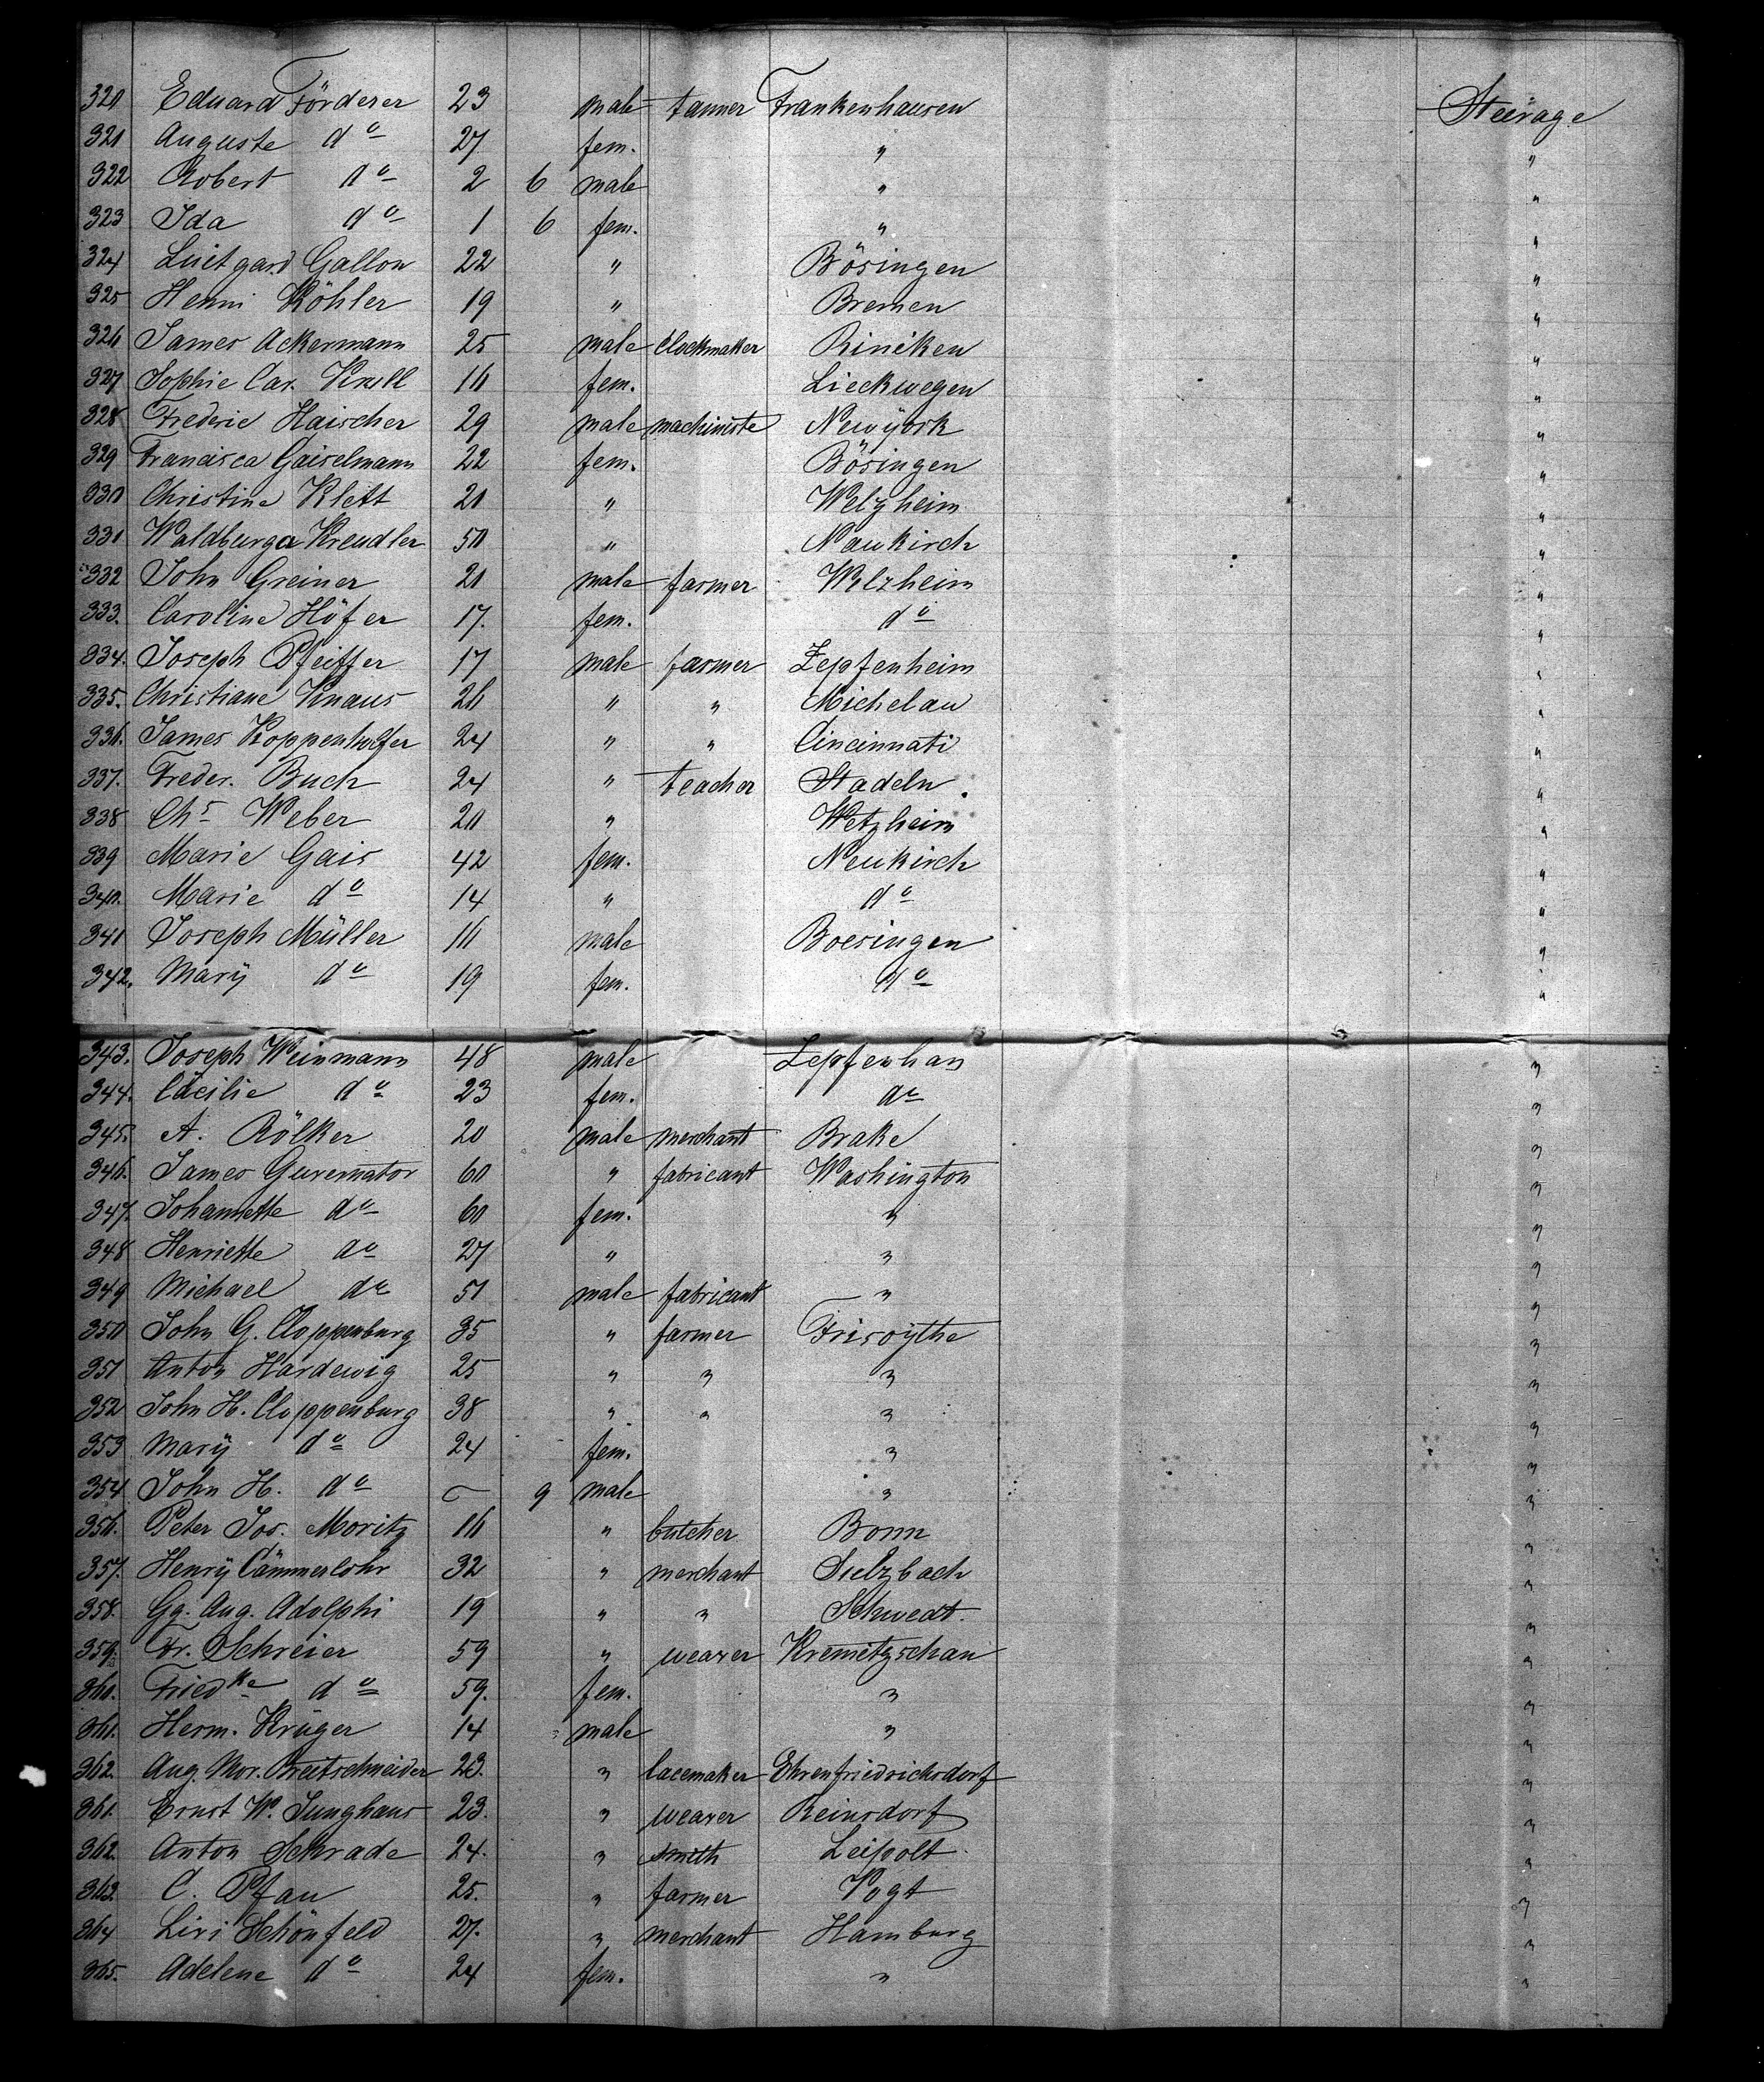 320 Eduard Förderer 23 male tanner Frankenhausen Steerage
321 Auguste do 27 fem. " "
322 Robert do 2 6 male " "
323 Ida do 1 6 fem. " "
324 Luitgard Gallon 22 " Bösingen "
325 Henni Köhler 19 " Bremen "
326 James Ackermann 25 male Clockmaker Riniken "
327 Sophie Car. Knell 16 fem. Lieckwegen "
328 Frederic Haischer 29 male machiniste Newÿork "
329 Francisca Gaiselmann 22 fem. Bösingen "
330 Christine Klett 20 " Welzheim "
331 Waldburga Kreudler 50 " Naukirch "
332 John Greiner 20 male farmer Welzheim "
333. Caroline Höfer 17. fem. do "
334. Joseph Pfeiffer 17 male farmer Zepfenheim "
335. Christiane Knaus 26 " " Michelau "
336. James Koppenhöfer 24 " " Cincinnati "
337. Freder. Buch 24 " teacher Stadeln. "
338 Chs Weber 20 " Wetzheim "
339 Marie Gais 42 fem. Neukirch "
340. Marie do 14 " do "
341 Joseph Müller 16 male Boesingen "
342. Marÿ do 19 fem. do "
343. Joseph Weinmann 48 male Zepfenhan "
344. Cäcilie do 23 fem. do "
345. A. Rölker 20 male merchant Brake "
346. James Guvernator 60 " fabricant Washington "
347. Johannette do 60 fem. " "
348 Henriette do 27 " " "
349 Michael do 51 male fabricant " "
350 John G. Cloppenburg 35 " farmer Frisoÿthe "
351 Anton Hardewig 25 " " " "
352 John H. Cloppenburg 38 " " " "
353 Marÿ do 24 fem. " "
354 John H. do 9 male " "
356. Peter Jos. Moritz 16 " butcher Bonn "
357. Henrÿ Cämmerlohr 32 " merchant Sulzbach "
358. Gg. Aug. Adolphi 19 " " Schwedt. "
359. Fr. Schreier 59 " weaver Kremitzschau "
360. Friedke do 59. fem. " "
361. Herm. Krüger 14 male " "
362. Aug. Mor. Breitschneider 23. " lacemaker Ehrenfriedrichsdorf "
361. Ernst W. Junghans 23. " weaver Reinsdorf "
362. Anton Schrade 24. " smith Leipolt "
363. C. Pfau 25. " farmer Vogt "
364 Livi Schönfeld 27. " merchant Hamburg "
365. Adelene do 24 fem. " "